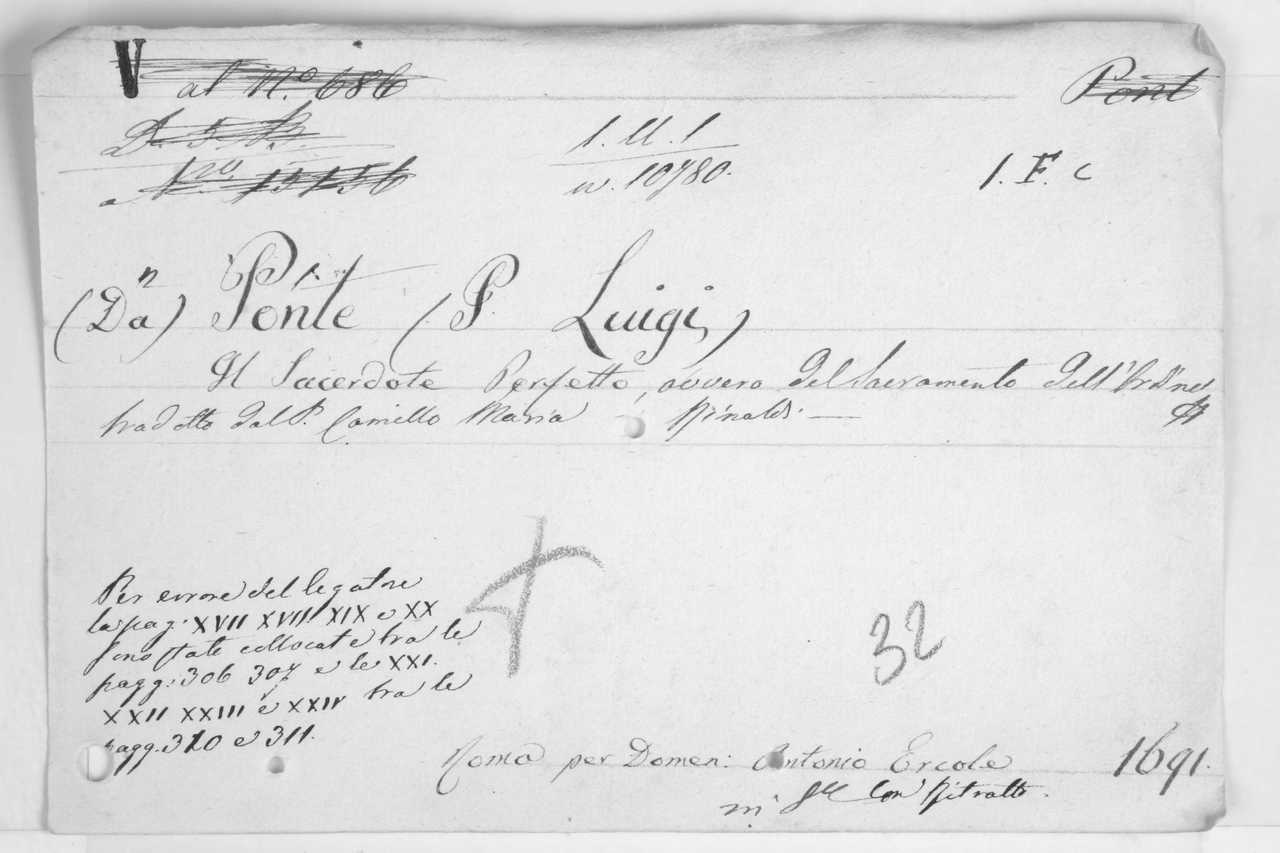 V al N.º 686
Pont
D. 5. B.
N.ro 15156
1. U. 1
w. 10780.
1. F. c
(Da) Ponte (P. Luigi)
Il Sacerdote Perfetto, ovvero del Sacramento dell'Ordine
tradotto dal P. Camillo Maria Rinaldi. —
Per errore del legatore
la pag: XVII XVIII XIX e XX
sono state collocate tra le
pagg: 306 307 e le XXI.
XXII XXIII e XXIV tra le
pagg. 310 e 311.
32
Roma per Domen: Antonio Ercole 1691.
in Con Ritratto.